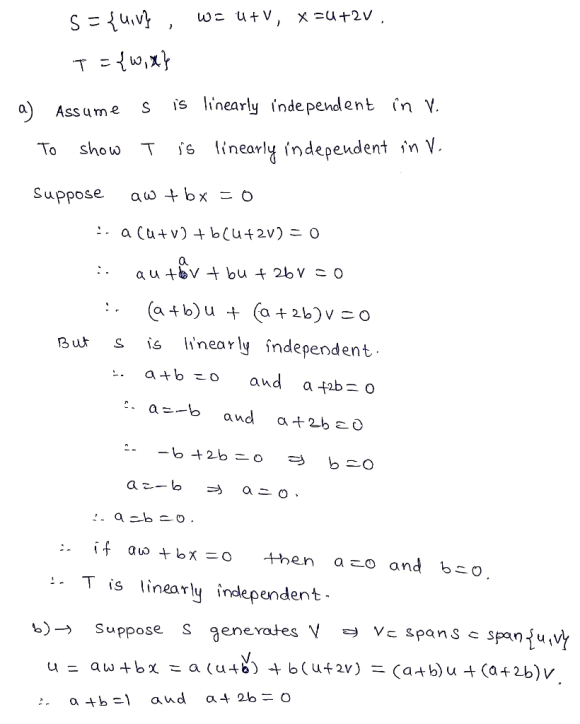 S = {u,v} , w = u+v, x = u+2v .
T = {w,x}
a) Assume S is linearly independent in V.
To show T is linearly independent in V.
Suppose aw + bx = 0
∴ a(u+v) + b(u+2v) = 0
∴ au + av + bu + 2bv = 0
∴ (a+b)u + (a+2b)v = 0
But S is linearly independent.
∴ a+b = 0 and a+2b = 0
∴ a = -b and a+2b = 0
∴ -b + 2b = 0 ⇒ b = 0
a = -b ⇒ a = 0.
∴ a = b = 0.
∴ if aw + bx = 0 then a = 0 and b = 0.
∴ T is linearly independent.
b) → Suppose S generates V ⇒ V = span S = span{u,v}
u = aw + bx = a(u+v) + b(u+2v) = (a+b)u + (a+2b)v.
∴ a+b = 1 and a+2b = 0